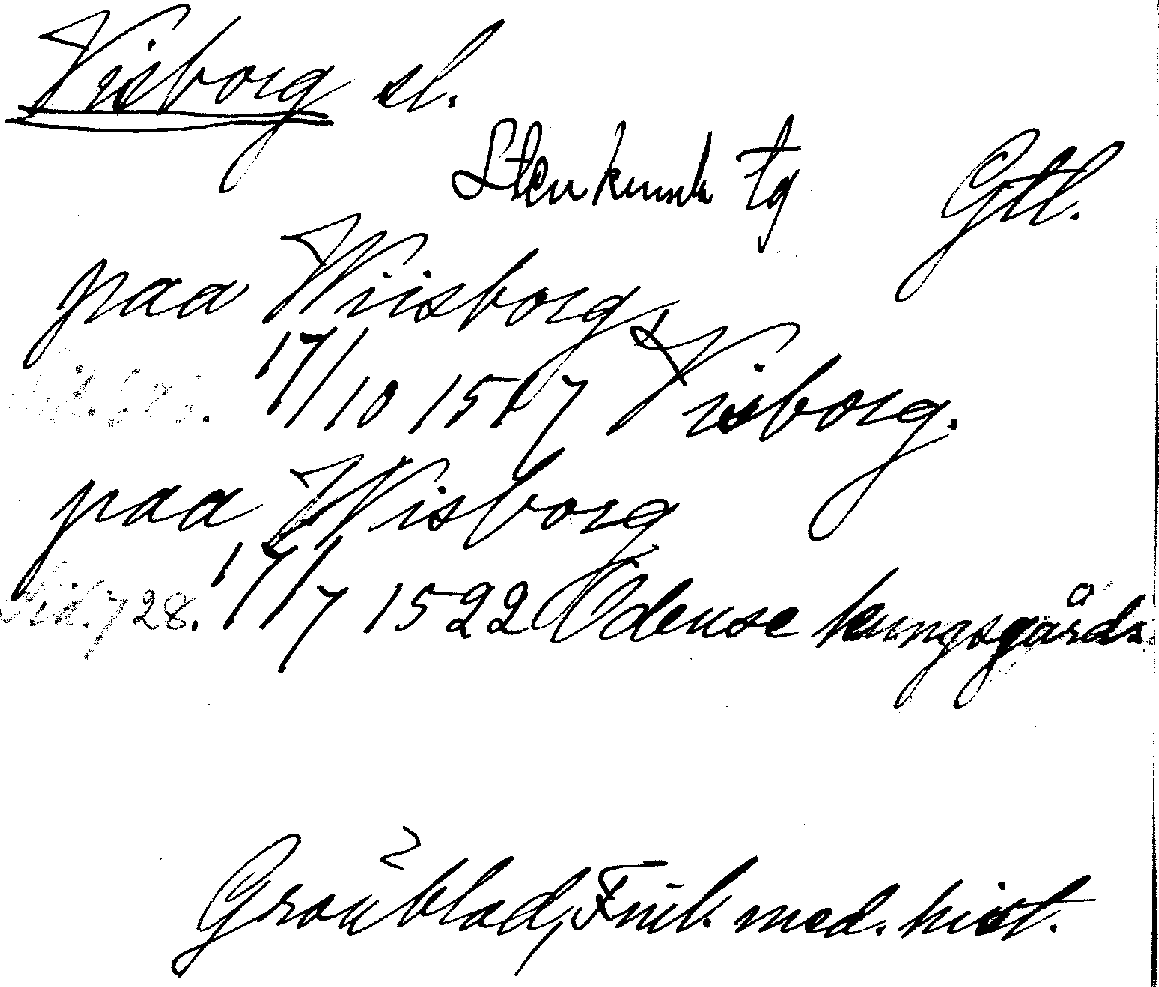 Visborg sl.
Stenkumla tg Gtl.
paa Wiisborg,
17/10 1517 Visborg.
paa Wisborg
Sid. 728. 17/7 1522 Odense kungsgård
Grönblad, Fml. med. hist.